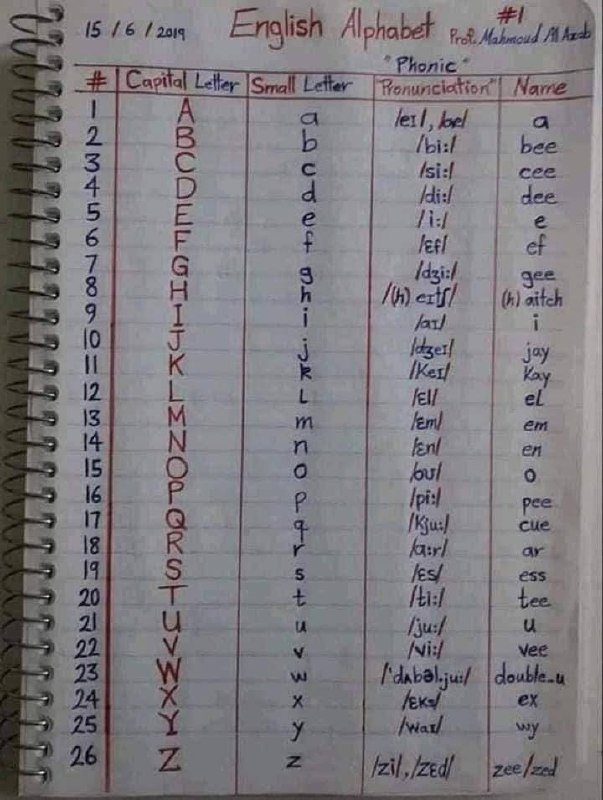 15 / 6 / 2019 English Alphabet #1
Prof. Mahmoud Al Azab
"Phonic"
# Capital Letter Small Letter Pronunciation" Name
1 A a /eɪ/, /æ/ a
2 B b /bi:/ bee
3 C c /si:/ cee
4 D d /di:/ dee
5 E e /i:/ e
6 F f /ɛf/ ef
7 G g /dʒi:/ gee
8 H h /(h) eɪtʃ/ (h) aitch
9 I i /aɪ/ i
10 J j /dʒeɪ/ jay
11 K k /keɪ/ kay
12 L l /ɛl/ el
13 M m /ɛm/ em
14 N n /ɛn/ en
15 O o /oʊ/ o
16 P p /pi:/ pee
17 Q q /kju:/ cue
18 R r /ɑ:r/ ar
19 S s /ɛs/ ess
20 T t /ti:/ tee
21 U u /ju:/ u
22 V v /vi:/ vee
23 W w /ˈdʌbəl.ju:/ double-u
24 X x /ɛks/ ex
25 Y y /waɪ/ wy
26 Z z /zi/, /zɛd/ zee/zed